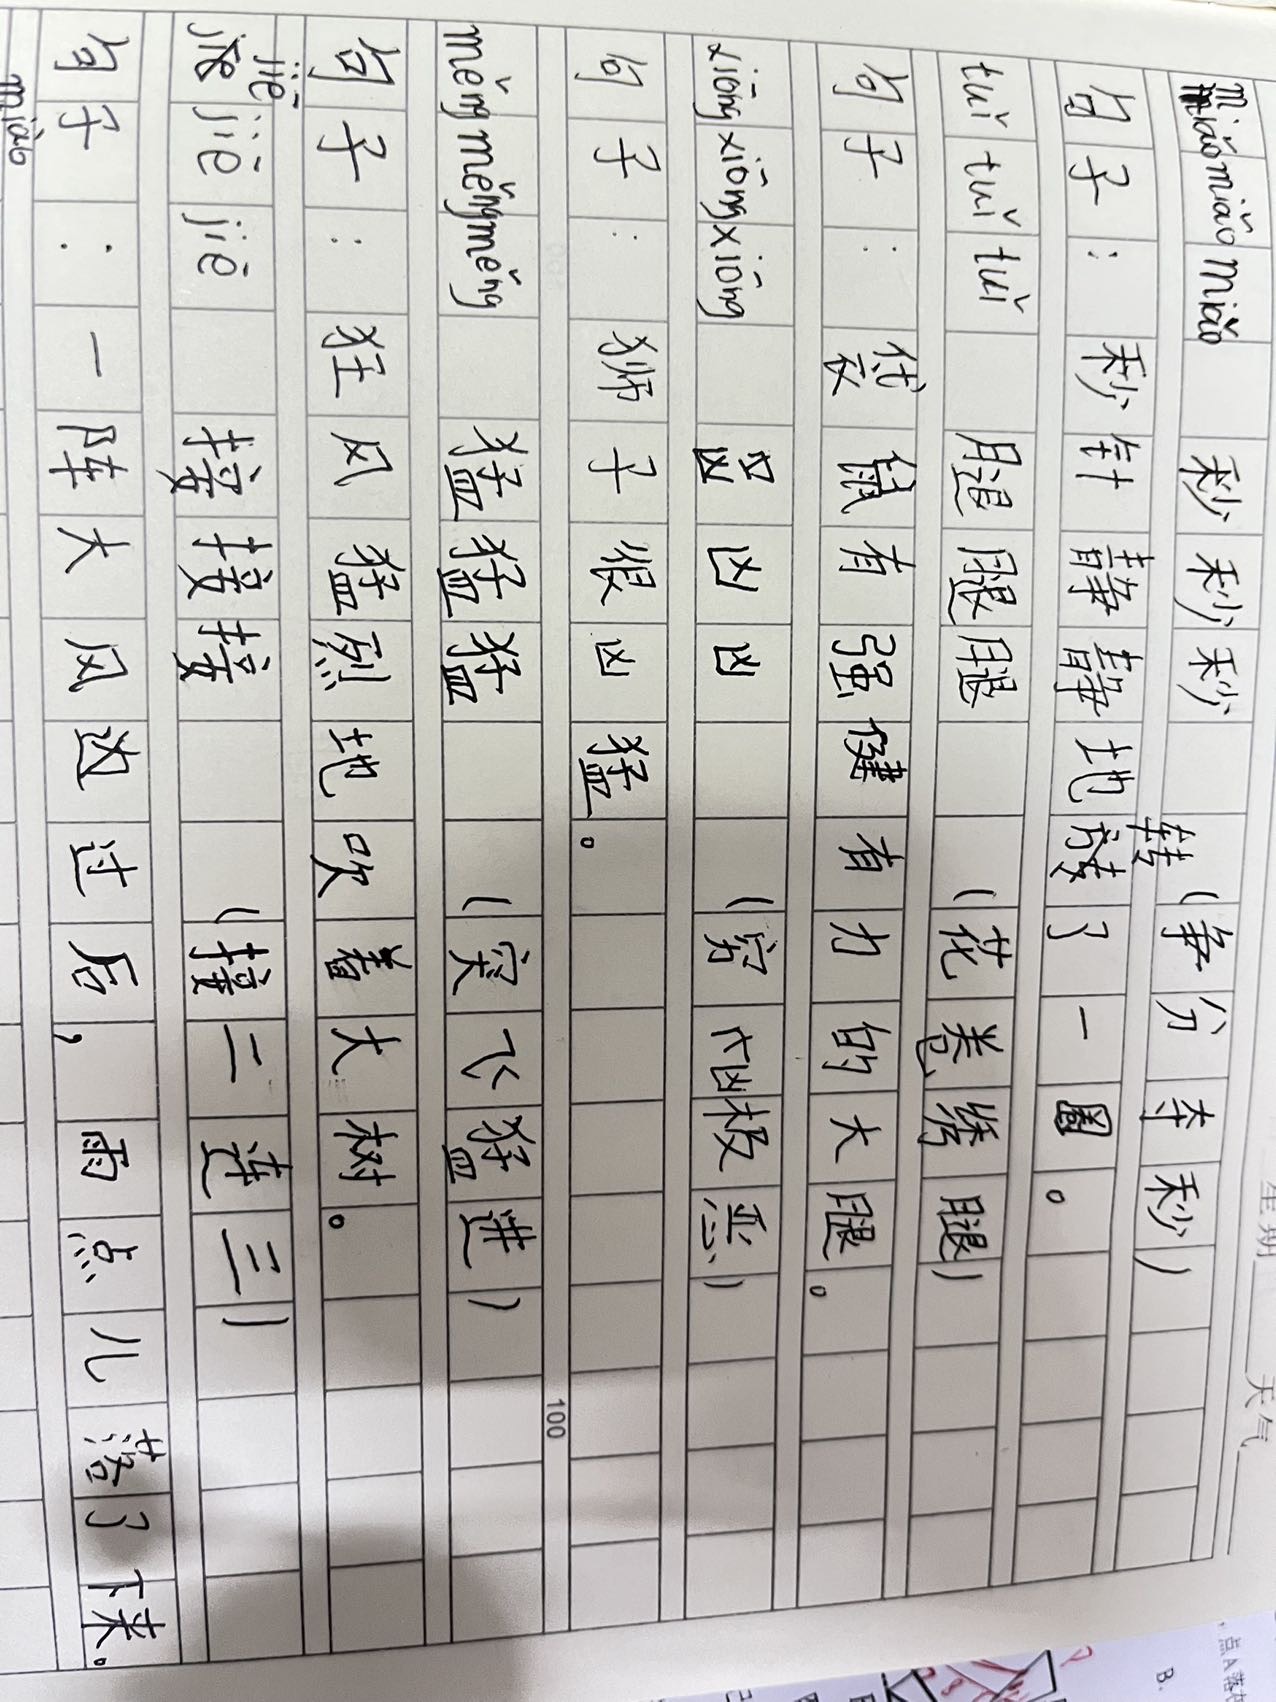 星期 天气
miǎo miǎo miǎo 秒秒秒 (争分夺秒)
句子: 秒针静静地转了一圈。
tuǐ tuǐ tuǐ 腿腿腿 (花卷绣腿)
句子: 袋鼠有强健有力的大腿。
xiōng xiōng xiōng 凶凶凶 (穷凶极恶)
句子: 狮子很凶猛。
100
měng měng měng 猛猛猛 (突飞猛进)
句子: 狂风猛烈地吹着大树。
jiē jiē jiē 接接接 (接二连三)
句子: 一阵大风过后, 雨点儿落了下来。